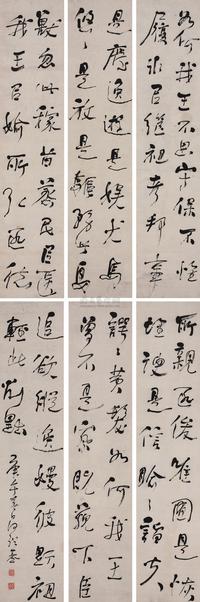 如何我王不思守保不惟
履冰以繼祖考邦事
是廢逸遊是娛犬馬
悠悠是放是驅務此鳥
獸忽此稼苗蒸民以匱
我王以媮所弘匪德
所親匪俊惟囿是恢
惟諛是信睮睮諂夫
諤諤黃髮如何我王
曾不是察既藐下臣
追欲縱逸嫚彼顯祖
輕此削黜
庚午